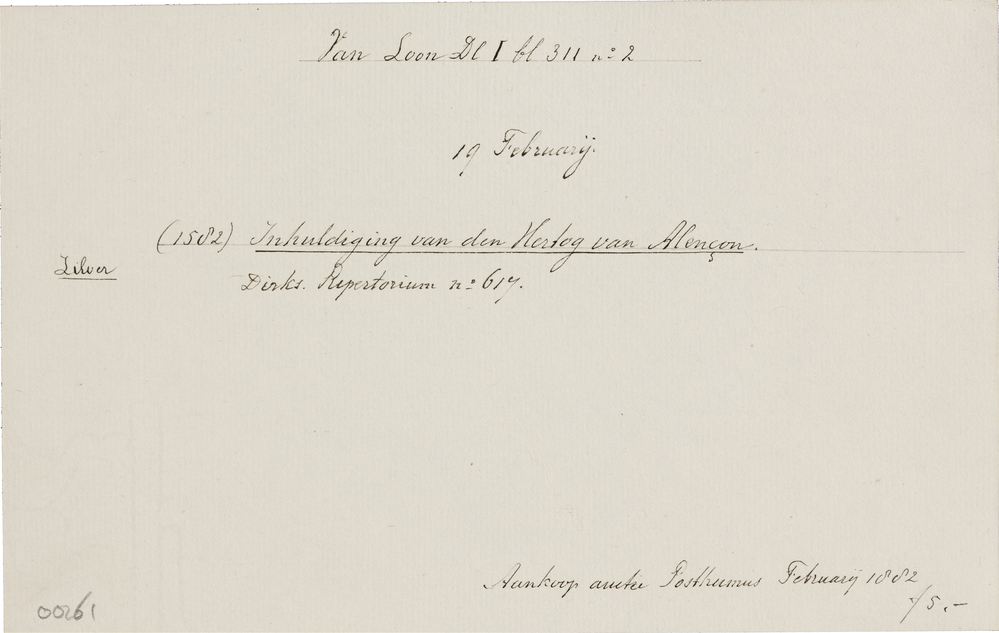 Van Loon Dl I bl 311 no 2
19 Februarij.
(1582) Inhuldiging van den Hertog van Alençon.
Zilver
Dirks. Repertorium no 617.
Aankoop auctie Posthumus Februarij 1882
f 5.-
00261